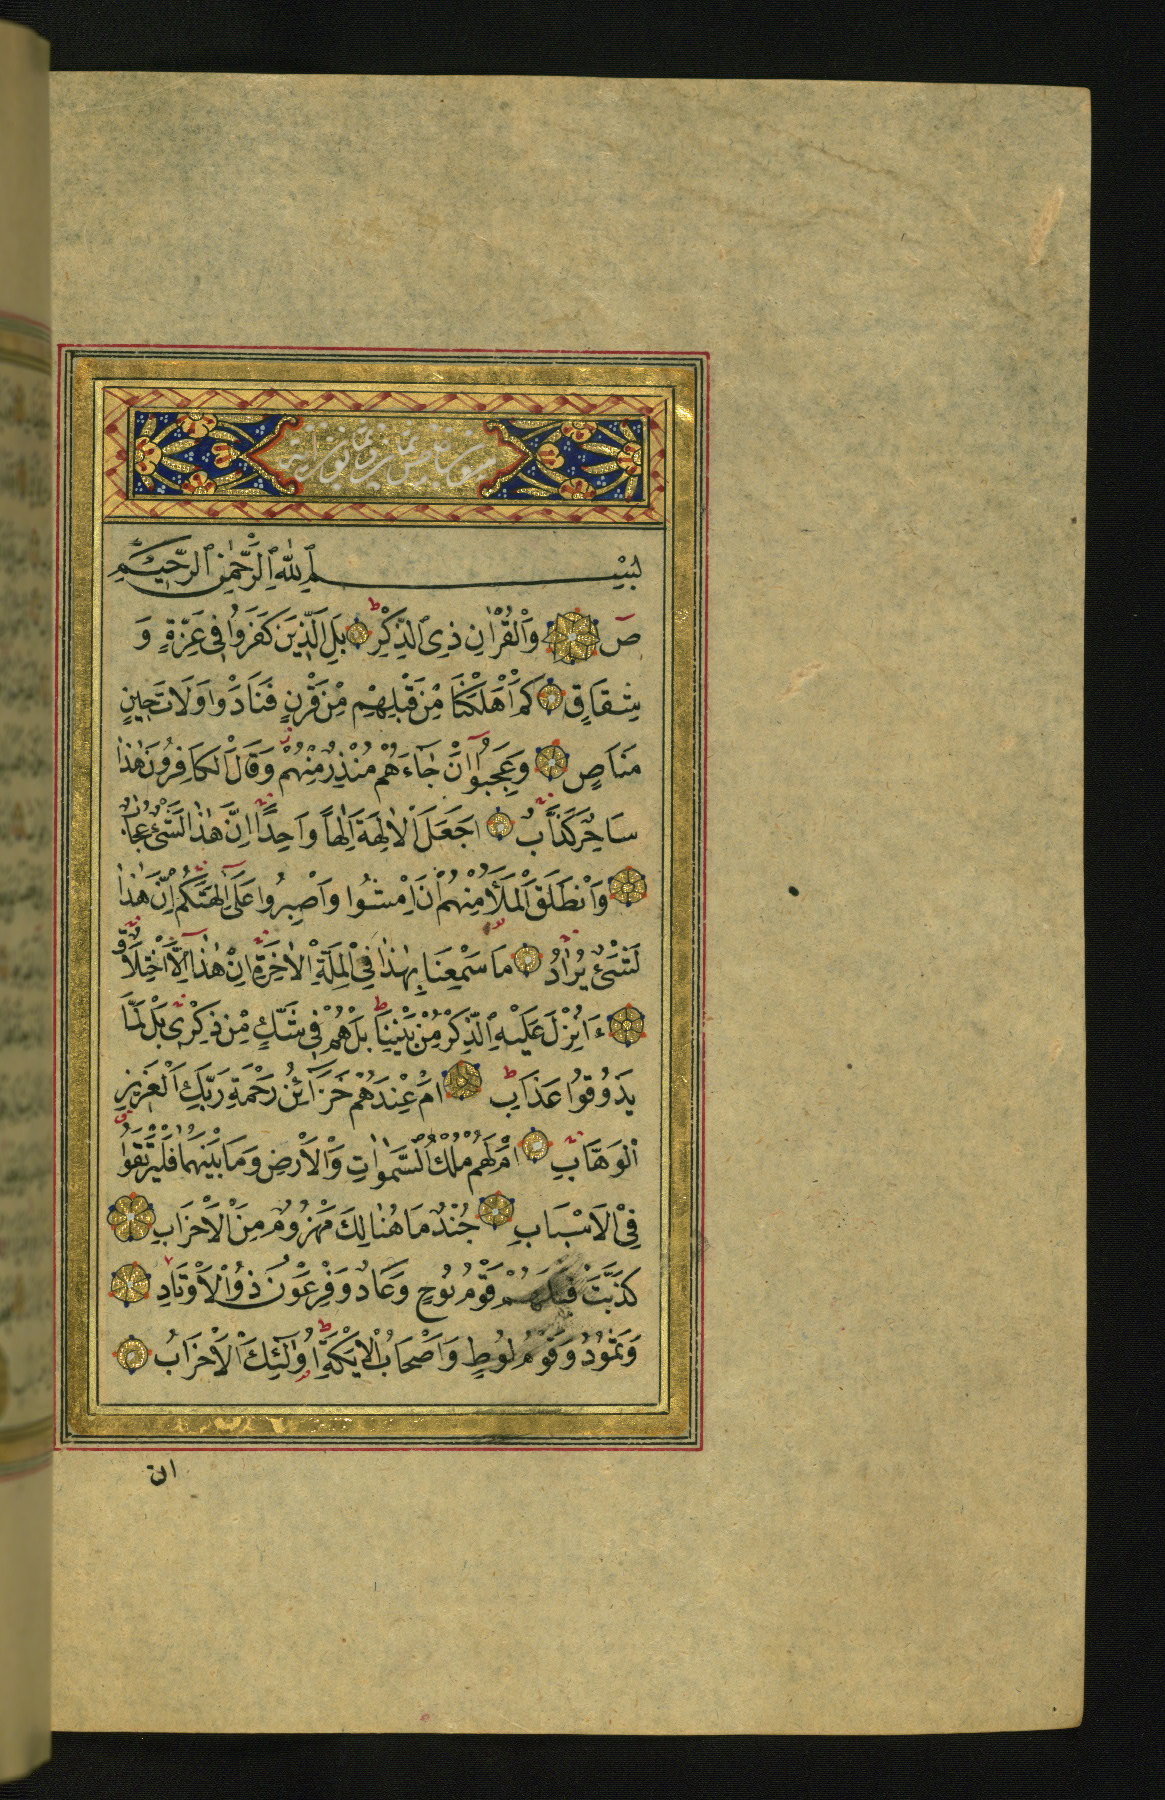 بِسْمِ اللّٰهِ الرَّحْمٰنِ الرَّحِيْمِ
صَ وَالْقُرْاٰنِ ذِى الذِّكْرِ بَلِ الَّذِيْنَ كَفَرُوْا فِى عِزَّةٍ وَ
شِقَاقٍ كَمْ اَهْلَكْنَا مِنْ قَبْلِهِمْ مِنْ قَرْنٍ فَنَادَوْا وَلَاتَ حِيْنِ
مَنَاصٍ وَعَجِبُوْا اَنْ جَاءَهُمْ مُنْذِرٌ مِنْهُمْ وَقَالَ الْكَافِرُوْنَ هٰذَا
سَاحِرٌ كَذَّابٌ اَجَعَلَ الْاٰلِهَةَ اِلٰهًا وَاحِدًا اِنَّ هٰذَا لَشَىْءٌ عُجَابٌ
وَانْطَلَقَ الْمَلَأُ مِنْهُمْ اَنِ امْشُوْا وَاصْبِرُوْا عَلٰى اٰلِهَتِكُمْ اِنَّ هٰذَا
لَشَىْءٌ يُرَادُ مَا سَمِعْنَا بِهٰذَا فِى الْمِلَّةِ الْاٰخِرَةِ اِنْ هٰذَا اِلَّا اخْتِلَاقٌ
ءَاُنْزِلَ عَلَيْهِ الذِّكْرُ مِنْ بَيْنِنَا بَلْ هُمْ فِى شَكٍّ مِنْ ذِكْرِى بَلْ لَمَّا
يَذُوْقُوْا عَذَابِ اَمْ عِنْدَهُمْ خَزَآئِنُ رَحْمَةِ رَبِّكَ الْعَزِيْزِ
الْوَهَّابِ اَمْ لَهُمْ مُلْكُ السَّمٰوَاتِ وَالْاَرْضِ وَمَا بَيْنَهُمَا فَلْيَرْتَقُوْا
فِى الْاَسْبَابِ جُنْدٌ مَا هُنَالِكَ مَهْزُوْمٌ مِنَ الْاَحْزَابِ
كَذَّبَتْ قَبْلَهُمْ قَوْمُ نُوْحٍ وَعَادٌ وَفِرْعَوْنُ ذُو الْاَوْتَادِ
وَثَمُوْدُ وَقَوْمُ لُوْطٍ وَاَصْحَابُ الْاَيْكَةِ اُولٰٓئِكَ الْاَحْزَابُ
ان